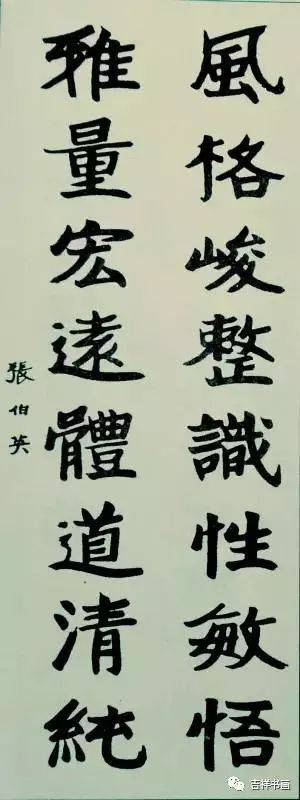 風格峻整識性敏悟
雅量宏遠體道清純
張伯英
吉祥书画